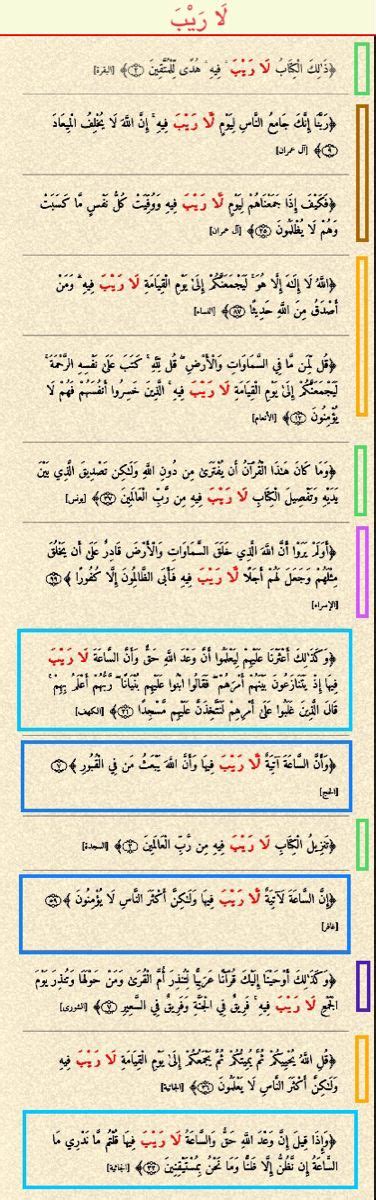 لَا رَيْبَ
﴿ذَٰلِكَ الْكِتَابُ لَا رَيْبَ ۛ فِيهِ ۛ هُدًى لِّلْمُتَّقِينَ ﴿٢﴾﴾ [البقرة]
﴿رَبَّنَا إِنَّكَ جَامِعُ النَّاسِ لِيَوْمٍ لَّا رَيْبَ فِيهِ ۚ إِنَّ اللَّهَ لَا يُخْلِفُ الْمِيعَادَ
﴿٩﴾﴾ [آل عمران]
﴿فَكَيْفَ إِذَا جَمَعْنَاهُمْ لِيَوْمٍ لَّا رَيْبَ فِيهِ وَوُفِّيَتْ كُلُّ نَفْسٍ مَّا كَسَبَتْ
وَهُمْ لَا يُظْلَمُونَ ﴿٢٥﴾﴾ [آل عمران]
﴿اللَّهُ لَا إِلَٰهَ إِلَّا هُوَ ۚ لَيَجْمَعَنَّكُمْ إِلَىٰ يَوْمِ الْقِيَامَةِ لَا رَيْبَ فِيهِ ۗ وَمَنْ
أَصْدَقُ مِنَ اللَّهِ حَدِيثًا ﴿٨٧﴾﴾ [النساء]
﴿قُل لِّمَن مَّا فِي السَّمَاوَاتِ وَالْأَرْضِ ۖ قُل لِّلَّهِ ۚ كَتَبَ عَلَىٰ نَفْسِهِ الرَّحْمَةَ ۚ
لَيَجْمَعَنَّكُمْ إِلَىٰ يَوْمِ الْقِيَامَةِ لَا رَيْبَ فِيهِ ۚ الَّذِينَ خَسِرُوا أَنفُسَهُمْ فَهُمْ لَا
يُؤْمِنُونَ ﴿١٢﴾﴾ [الأنعام]
﴿وَمَا كَانَ هَٰذَا الْقُرْآنُ أَن يُفْتَرَىٰ مِن دُونِ اللَّهِ وَلَٰكِن تَصْدِيقَ الَّذِي بَيْنَ
يَدَيْهِ وَتَفْصِيلَ الْكِتَابِ لَا رَيْبَ فِيهِ مِن رَّبِّ الْعَالَمِينَ ﴿٣٧﴾﴾ [يونس]
﴿أَوَلَمْ يَرَوْا أَنَّ اللَّهَ الَّذِي خَلَقَ السَّمَاوَاتِ وَالْأَرْضَ قَادِرٌ عَلَىٰ أَن يَخْلُقَ
مِثْلَهُمْ وَجَعَلَ لَهُمْ أَجَلًا لَّا رَيْبَ فِيهِ فَأَبَى الظَّالِمُونَ إِلَّا كُفُورًا ﴿٩٩﴾﴾
[الإسراء]
﴿وَكَذَٰلِكَ أَعْثَرْنَا عَلَيْهِمْ لِيَعْلَمُوا أَنَّ وَعْدَ اللَّهِ حَقٌّ وَأَنَّ السَّاعَةَ لَا رَيْبَ
فِيهَا إِذْ يَتَنَازَعُونَ بَيْنَهُمْ أَمْرَهُمْ ۖ فَقَالُوا ابْنُوا عَلَيْهِم بُنْيَانًا ۖ رَّبُّهُمْ أَعْلَمُ بِهِمْ ۚ
قَالَ الَّذِينَ غَلَبُوا عَلَىٰ أَمْرِهِمْ لَنَتَّخِذَنَّ عَلَيْهِم مَّسْجِدًا ﴿٢١﴾﴾ [الكهف]
﴿وَأَنَّ السَّاعَةَ آتِيَةٌ لَّا رَيْبَ فِيهَا وَأَنَّ اللَّهَ يَبْعَثُ مَن فِي الْقُبُورِ ﴿٧﴾﴾
[الحج]
﴿تَنزِيلُ الْكِتَابِ لَا رَيْبَ فِيهِ مِن رَّبِّ الْعَالَمِينَ ﴿٢﴾﴾ [السجدة]
﴿إِنَّ السَّاعَةَ لَآتِيَةٌ لَّا رَيْبَ فِيهَا وَلَٰكِنَّ أَكْثَرَ النَّاسِ لَا يُؤْمِنُونَ ﴿٥٩﴾﴾
[غافر]
﴿وَكَذَٰلِكَ أَوْحَيْنَا إِلَيْكَ قُرْآنًا عَرَبِيًّا لِّتُنذِرَ أُمَّ الْقُرَىٰ وَمَنْ حَوْلَهَا وَتُنذِرَ يَوْمَ
الْجَمْعِ لَا رَيْبَ فِيهِ ۚ فَرِيقٌ فِي الْجَنَّةِ وَفَرِيقٌ فِي السَّعِيرِ ﴿٧﴾﴾ [الشورى]
﴿قُلِ اللَّهُ يُحْيِيكُمْ ثُمَّ يُمِيتُكُمْ ثُمَّ يَجْمَعُكُمْ إِلَىٰ يَوْمِ الْقِيَامَةِ لَا رَيْبَ فِيهِ
وَلَٰكِنَّ أَكْثَرَ النَّاسِ لَا يَعْلَمُونَ ﴿٢٦﴾﴾ [الجاثية]
﴿وَإِذَا قِيلَ إِنَّ وَعْدَ اللَّهِ حَقٌّ وَالسَّاعَةُ لَا رَيْبَ فِيهَا قُلْتُم مَّا نَدْرِي مَا
السَّاعَةُ إِن نَّظُنُّ إِلَّا ظَنًّا وَمَا نَحْنُ بِمُسْتَيْقِنِينَ ﴿٣٢﴾﴾ [الجاثية]